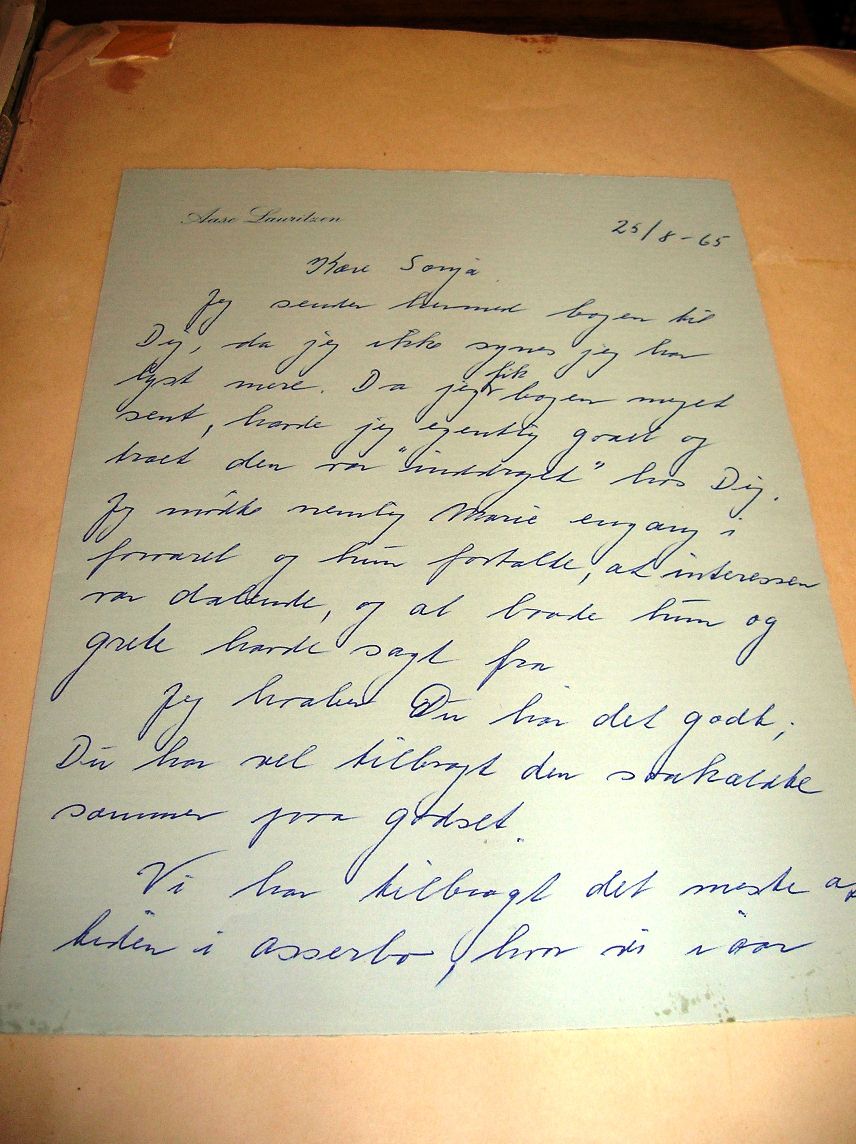 Aase Lauritzen
25/8-65
Kære Sonja
Jeg sender hermed bogen til
Dig, da jeg ikke synes jeg har
lyst mere. Da jeg fik bogen meget
sent, havde jeg egentlig graet og
troet den var "inddraget" hos Dig.
Jeg mødte nemlig Marie engang i
foraaret og hun fortalte, at interessen
var dalende, og at baade hun og
Grete havde sagt fra
Jeg haaber Du har det godt;
Du har vel tilbragt den saakaldte
sommer paa godset.
Vi har tilbragt det meste af
tiden i Asserbo, hvor vi i aar